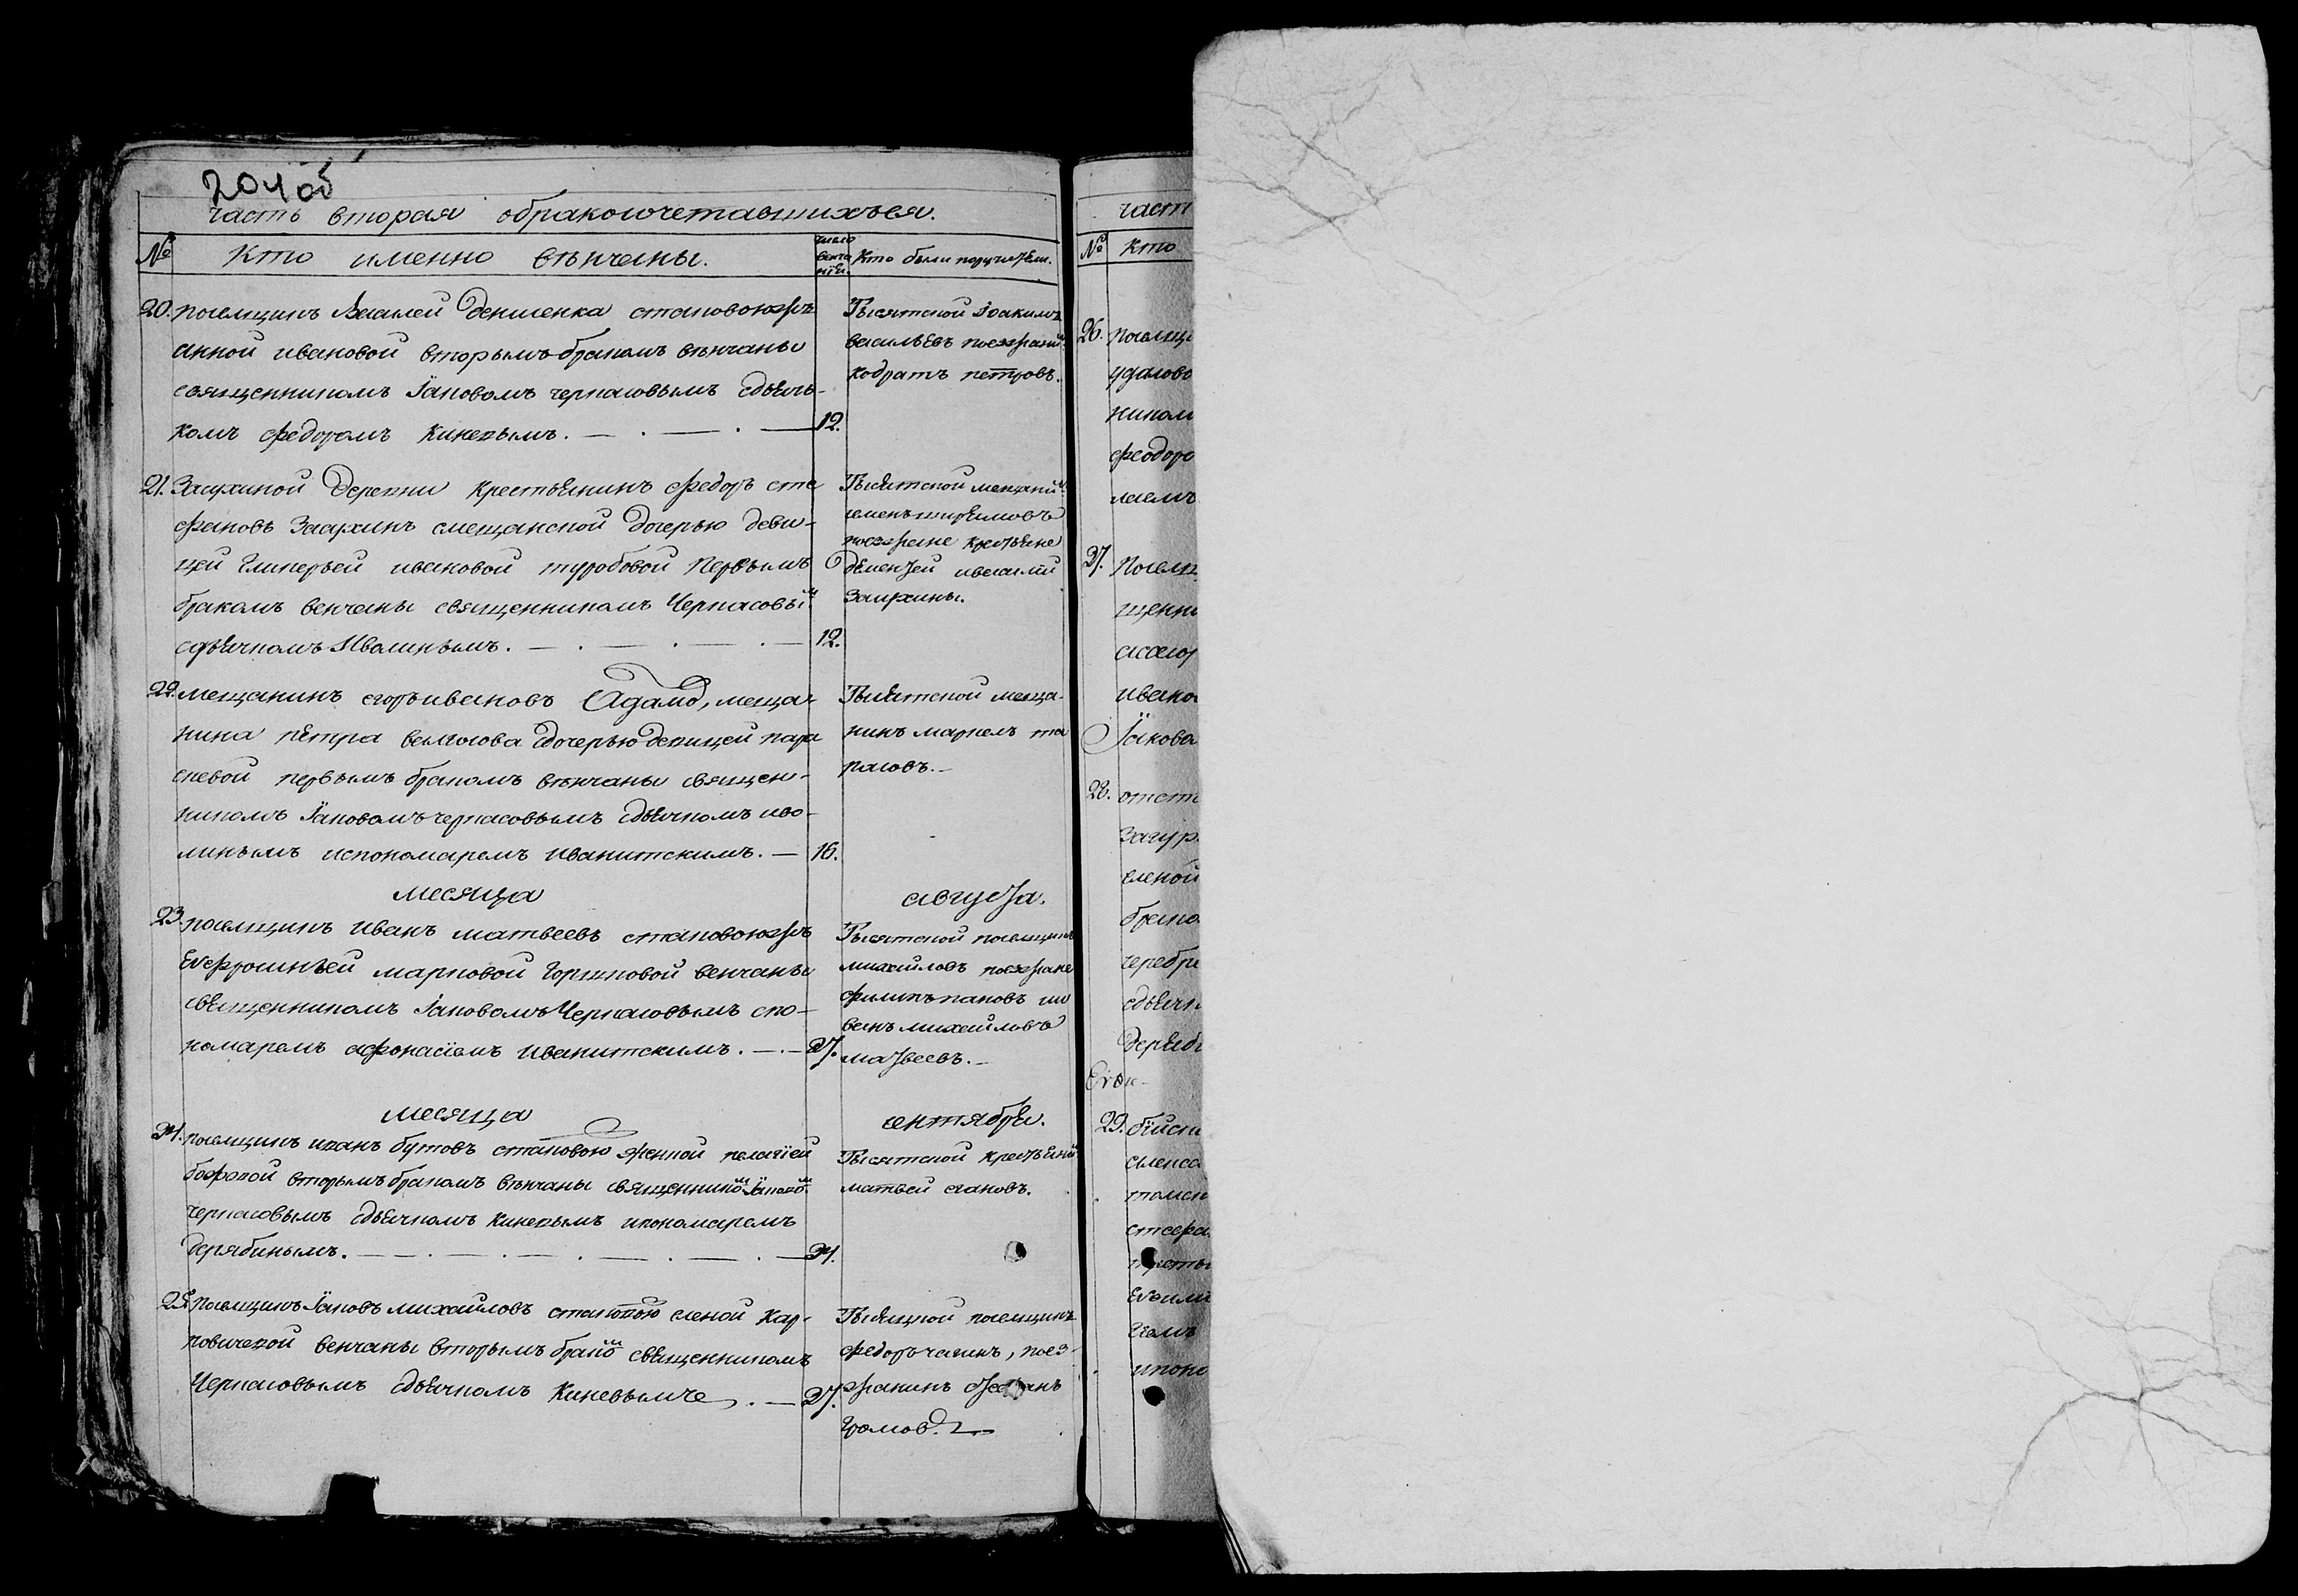 204 об
часть вторая обракосочетавшихъся.
№ Кто именно вѣнчаны. число венчанiя. Кто были поручители.
20. поселщикъ Василей Денисенка стаковоюжъ
анной ивановой вторымъ бракомъ вѣнчаны
священникомъ Iаковомъ черкасовымъ сдьячь-
комъ федоромъ Киневымъ. 12.
Тысятской Iоакимъ
васильевъ поезжаний
кодратъ петровъ.
21. Засухиной Деревни крестьянинъ федоръ сте
фановъ Засухинъ смещанской дочерью деви-
цей Гликерьей ивановой туробовой Первымъ
бракомъ венчаны священникомъ Черкасовым
сдьячкомъ Иволинымъ. 12.
Тысятской мещанин
семенъ
поезжане крестьяне
дементей ивасилий
Засухины.
22. мещанинъ егоръ ивановъ Адамо, меща-
нина петра дочерью девицей пара
скевой первымъ бракомъ вѣнчаны священ-
никомъ Iаковомъ черкасовымъ сдьячкомъ иво-
линымъ испономаремъ иванитскимъ. 16.
Тысятской меща-
нинъ маркелъ та
расовъ.
месяца августа.
23. поселщикъ иванъ матвеевъ стаковоюжъ
Евфросиньей марковой Горшковой венчаны
священникомъ Iаковомъ Черкасовымъ спо-
номаремъ афонасiемъ иванитскимъ. 27.
Тысятской поселщикъ
михайловъ поезжане
филипъ пановъ ии
ванъ михайловъ
матвеевъ.
месяца сентября.
24. поселщикъ иванъ бутовъ стаковою женкой пелагiей
вторымъ бракомъ вѣнчаны священником Iаковом
черкасовымъ сдьячкомъ киневымъ ипономаремъ
дерябинымъ. 24.
Тысятской крестьянин
матвей
25. Поселщикъ Iаковъ михайловъ стаковою еленой Кар-
повичевой венчаны вторымъ браком священникомъ
Черкасовымъ сдьячкомъ Киневымъ 27.
Тысяцкой поселщикъ
федоръ, поез-
жанинъ степанъ
Громов.
част
№ Кто
26. поселщ
удалово
никомъ
феодоро
27. Поселщ
щенни
ивано
Iакова
28. отст
Загур
еленой
брако
черебр
сдьячк
деряби
29. бiйск
томск